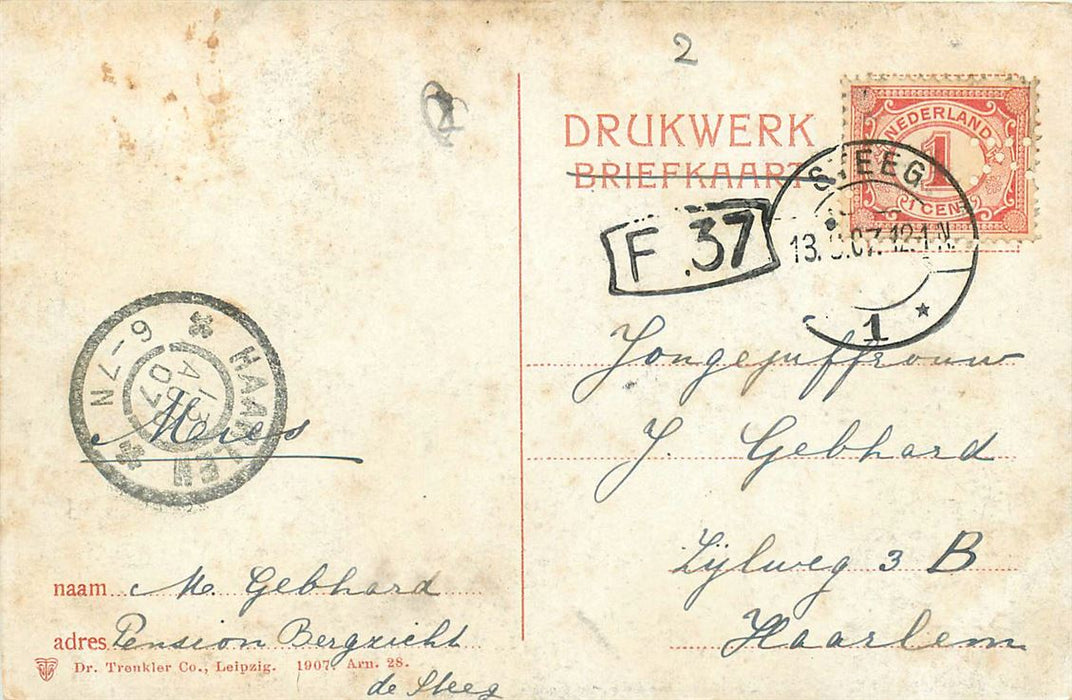 2
DRUKWERK
BRIEFKAART
NEDERLAND
1
1 CENT
STEEG
12-1 N.
1
F. 37
HAARLEM
6-7N
13
07
Jongejuffrouw
J. Gebhard
Zijlweg 3 B
Haarlem
naam M. Gebhard
adres Pension Bergzicht
de Steeg
Dr. Trenkler Co., Leipzig. 1907 Arn. 28.